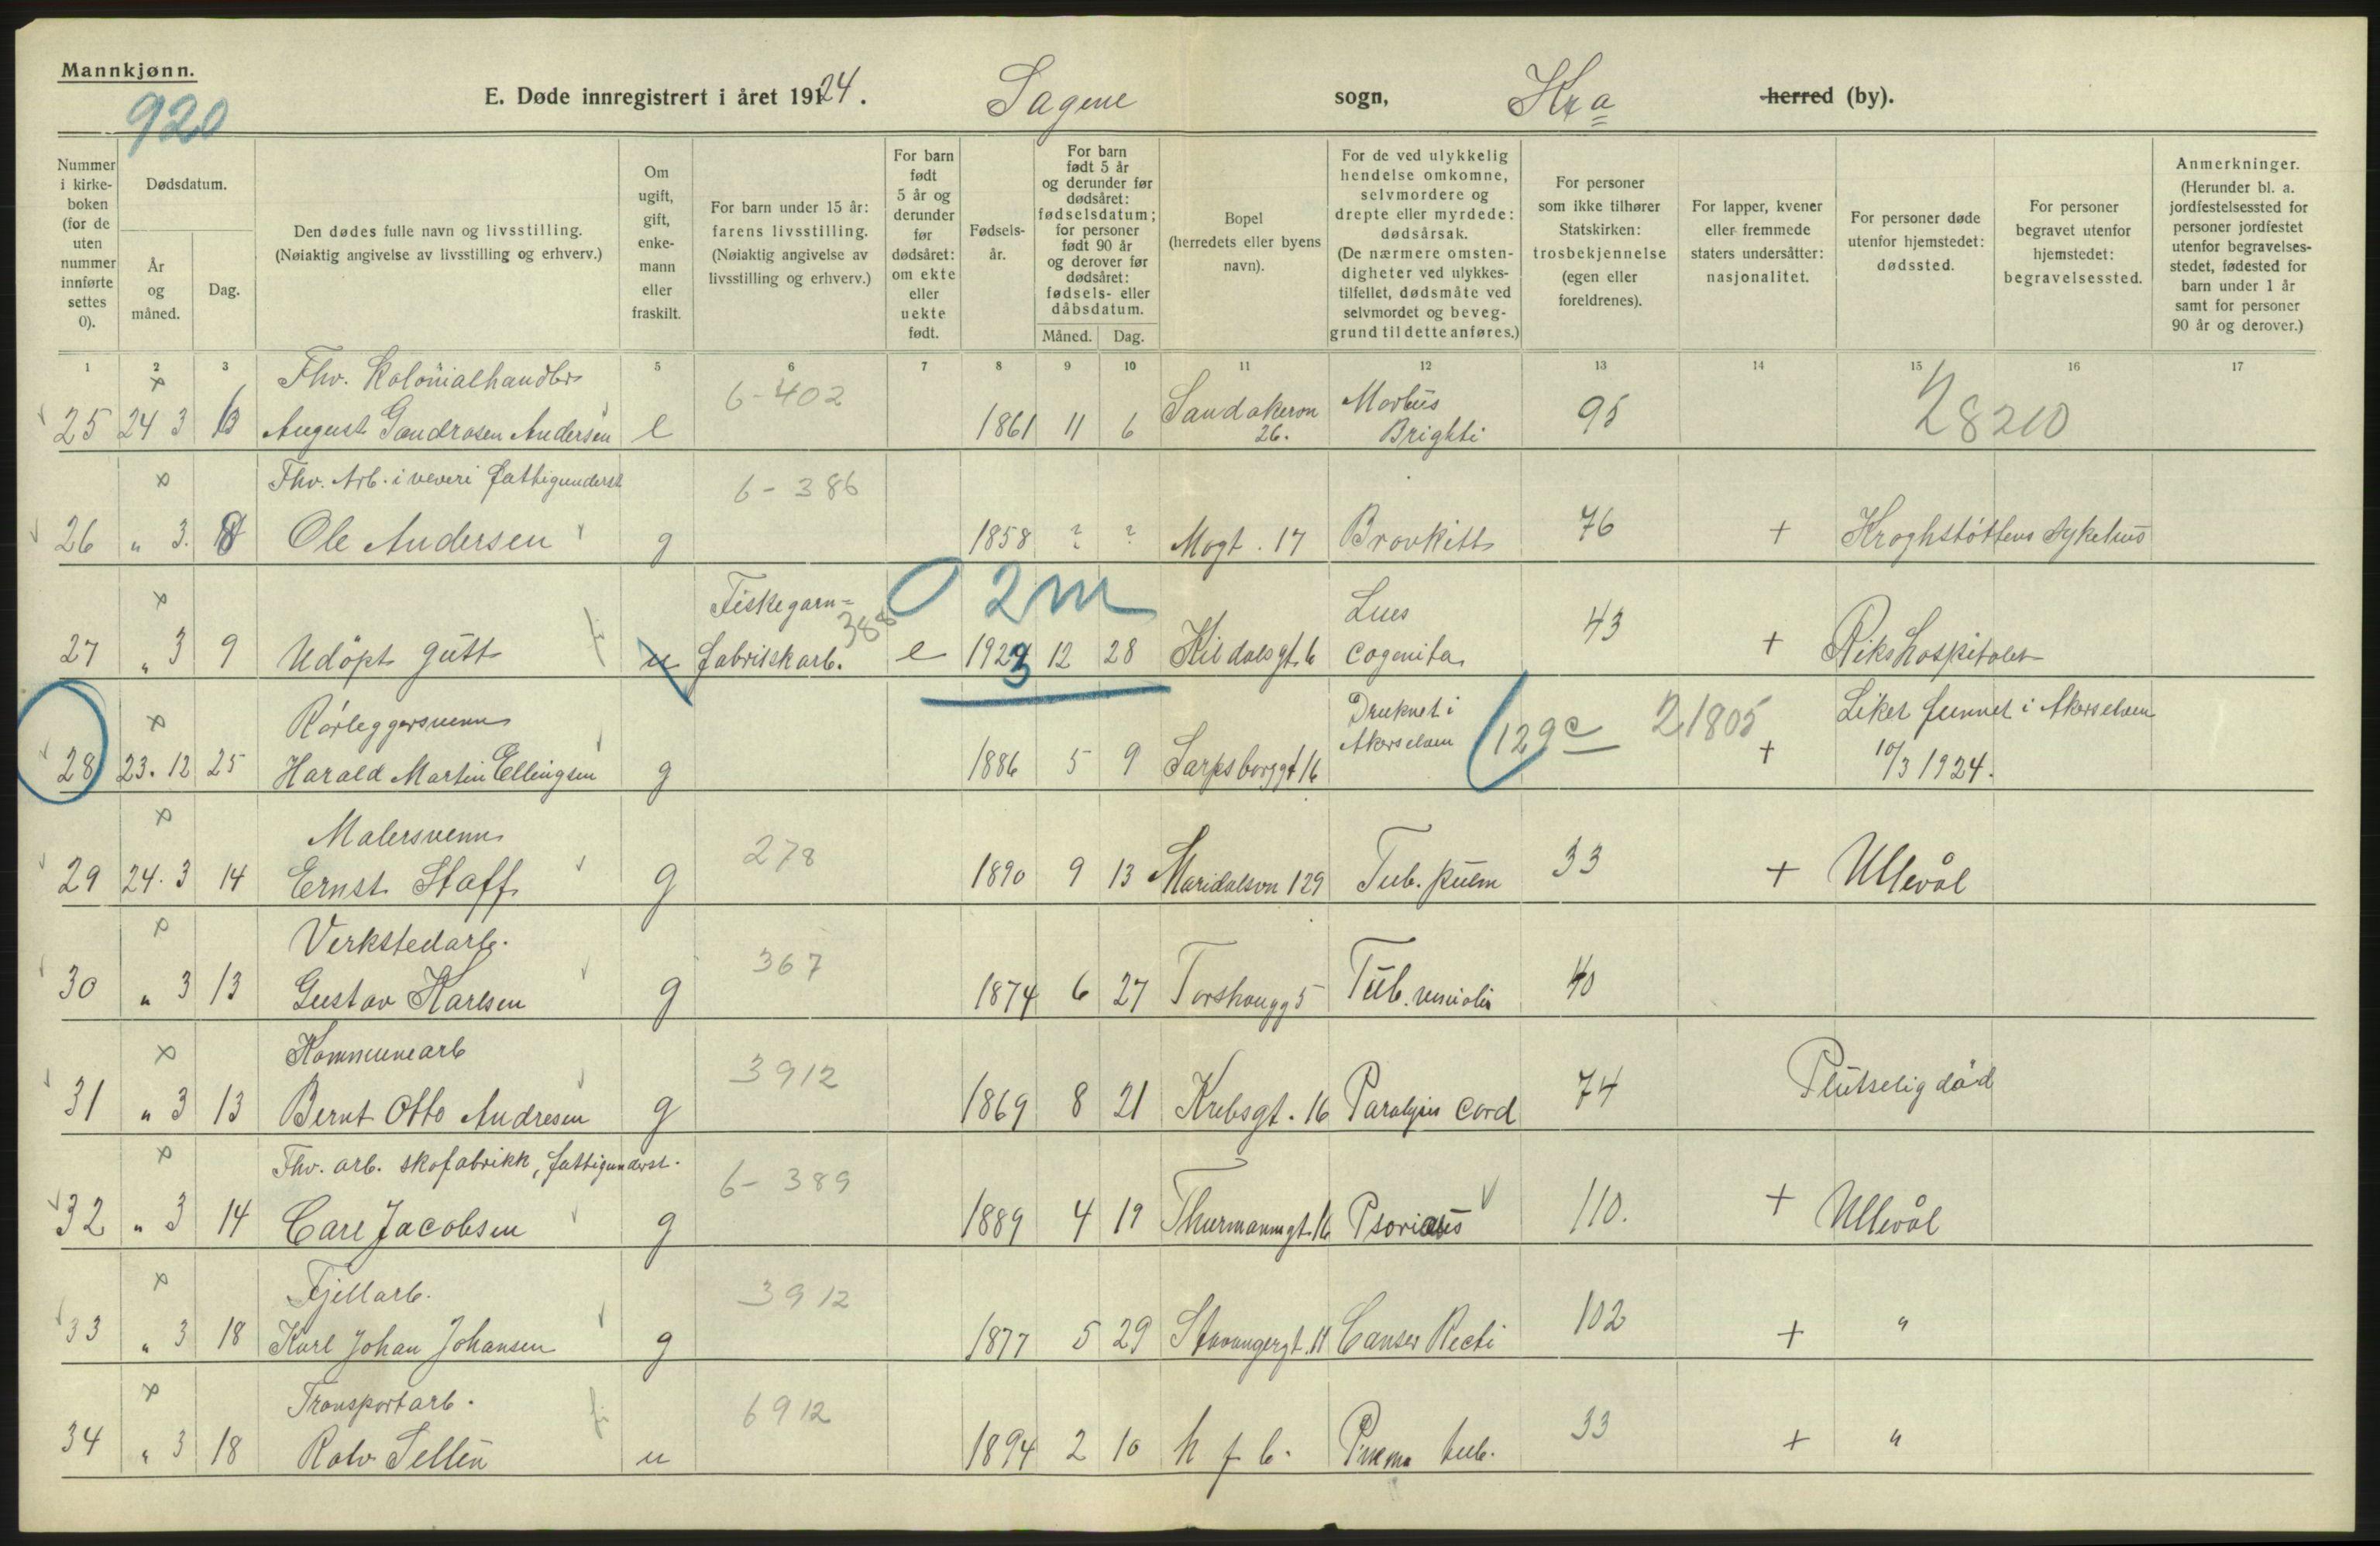 Mannkjønn.
920
E. Døde innregistrert i året 19124.
Sagene sogn, Kra herred (by).
Nummer i kirke-boken (for de uten nummer innførte settes 0).
Dødsdatum.
År og måned.
Dag.
Den dødes fulle navn og livsstilling.
(Nøiaktig angivelse av livsstilling og erhverv.)
Om ugift, gift, enke-mann eller fraskilt.
For barn under 15 år: farens livsstilling.
(Nøiaktig angivelse av livsstilling og erhverv.)
For barn født 5 år og derunder før dødsåret: om ekte eller uekte født.
Fødsels-år.
For barn født 5 år og derunder før dødsåret: fødselsdatum; for personer født 90 år og derover før dødsåret: fødsels- eller dåbsdatum.
Måned. Dag.
Bopel (herredets eller byens navn).
For de ved ulykkelig hendelse omkomne, selvmordere og drepte eller myrdede: dødsårsak.
(De nærmere omsten-digheter ved ulykkes-tilfellet, dødsmåte ved selvmordet og beveg-grund til dette anføres.)
For personer som ikke tilhører Statskirken: trosbekjennelse (egen eller foreldrenes).
For lapper, kvener eller fremmede staters undersåtter: nasjonalitet.
For personer døde utenfor hjemstedet: dødssted.
For personer begravet utenfor hjemstedet: begravelsessted.
Anmerkninger.
(Herunder bl. a. jordfestelsessted for personer jordfestet utenfor begravelses-stedet, fødested for barn under 1 år samt for personer 90 år og derover.)
1 2 3 5 6 7 8 9 10 11 12 13 14 15 16 17
x Fhv. Kolonialhandler 6-402
25 24 3 13 August Gandrosen Andersen e 1861 11 6 Sandakervn 26. Morbus Brighti 95 28210
x Fhv. Arb. i veveri fattigunderst 6-386
26 " 3. 8 Ole Andersen g 1858 ? ? Mogt. 17 Brovkitts 76 + Kroghstøttens sykehus
x Fiskegarn= 388 0 2m Lues
27 " 3 9 Udöpt gutt u fabrikkarb. e 1923 12 28 Kildalsgt. 6 Cogenita 43 + Rikshospitalet
x Rörleggersvenn Druknet i Akerselven 129c 21805 Liket funnet i Akerselven
28 23. 12 25 Harald Martin Ellingsen g 1886 5 9 Sarpsborggt 16 + 10/3 1924.
x Malersvenn 278
29 24. 3 14 Ernst Staff g 1890 9 13 Maridalsvn 129 Tub. pulm 33 + Ullevål
x Verkstedarb. 367
30 " 3 13 Gustav Karlsen g 1874 6 27 Torshovgg 5 Tub. 40
x Kommunearb 3912
31 " 3 13 Bernt Otto Andresen g 1869 8 21 Krebsgt. 16 Paralysis Cord 74 Plutselig död
x Fhv. arb. skofabrikk, fattigunderst. 6-389
32 " 3 14 Carl Jacobsen g 1889 4 19 Thurmannsgt. 16 Psoriasis 110. + Ullevål
x Fjellarb. 3912
33 " 3 18 Karl Johan Johansen g 1877 5 29 Stavangergt. 11 Canser Recti 102 + "
x Transportarb. 6912
34 " 3 18 Rolv Sellen u 1894 2 10 h f b. tub. 33 + "